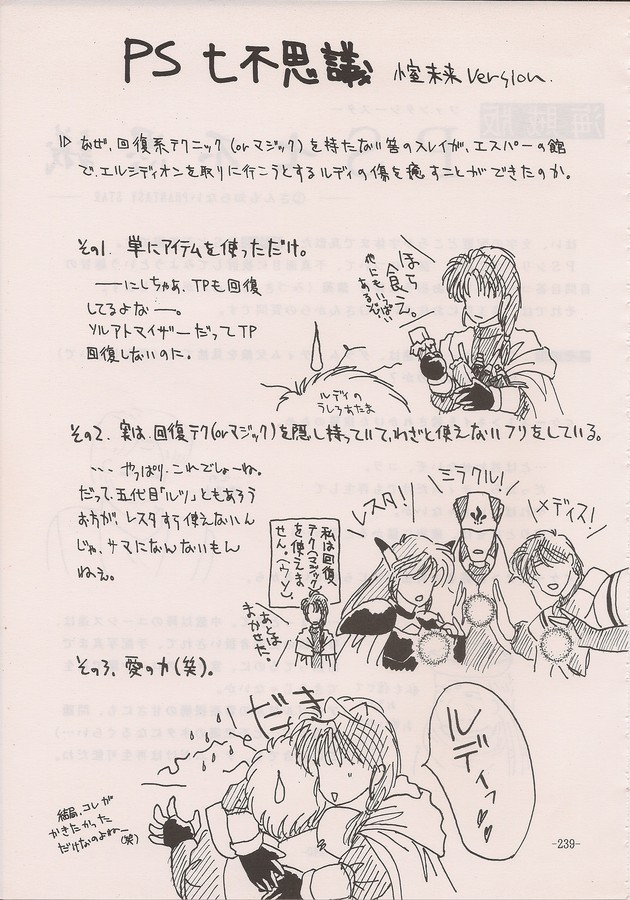 PS 七不思議 小室未来 Version.
なぜ、回復系テクニック(orマジック)を持たない筈のスレイが、エスパーの館
で、エルシディオンを取りに行こうとするルディの傷を癒すことができたのか。
その1. 単にアイテムを使っただけ。
——にしちゃあ、TPも回復
してるよなー。
ソルアトマイザーだってTP
回復しないのに。
ほら
食え。
やにもいっぱい
あるぞ
ルディの
うしろあたま
その2. 実は、回復テク(orマジック)を隠し持っていて、わざと使えないフリをしている。
・・・やっぱり、これでしょーね。
だって、五代目「ルツ」ともあろう
お方が、レスタすら使えないん
じゃ、サマになんないもん
ねぇ。
レスタ!
ミラクル!
メディス!
私は回復
テク(マジック)
を使えま
せん。(ウソ)
あとは
まかせた。
その3. 愛の力(笑)。
だきっ
ルディっ♥♥
結局、コレが
かきたかった
だけなのよねー
(笑)
-239-